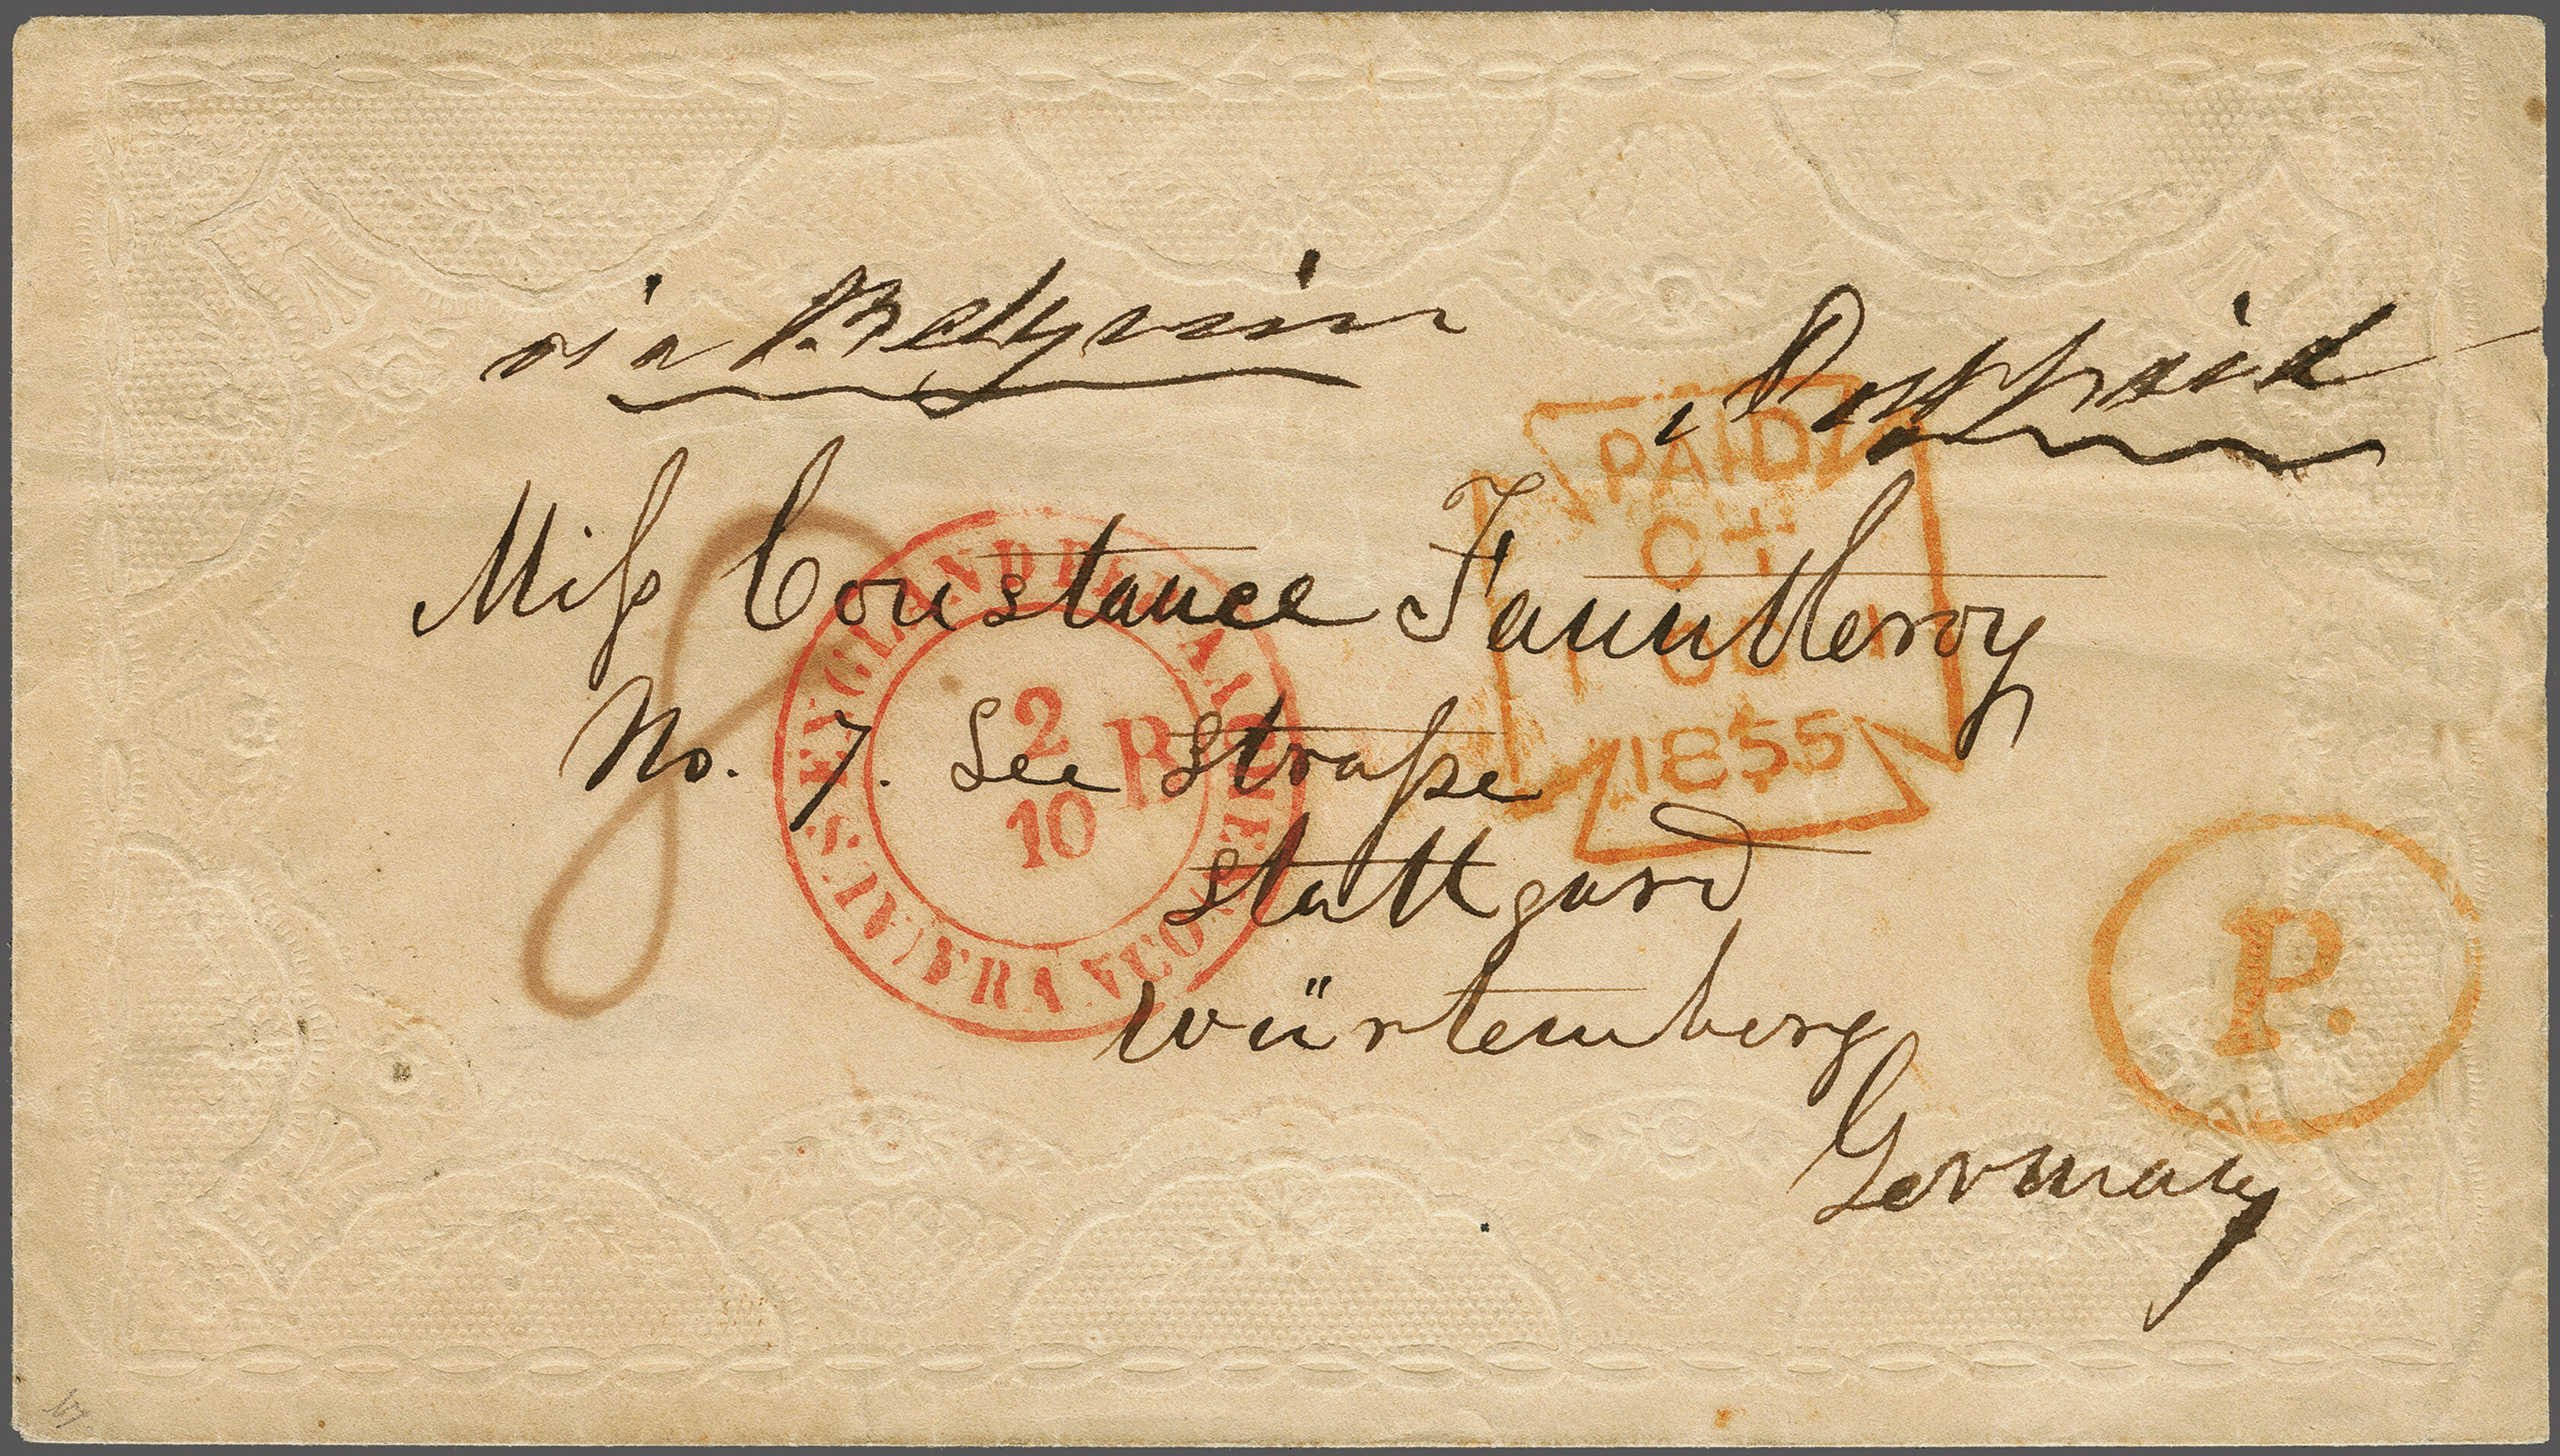 via Belgium
Postpaid
Miß Constance Fauntleroy
No. 7. See Straße
Stuttgard
Würtemberg
Germany
PAID
1855
ENGLAND PER AACHEN
FRANCO
2
10
B
P.
8